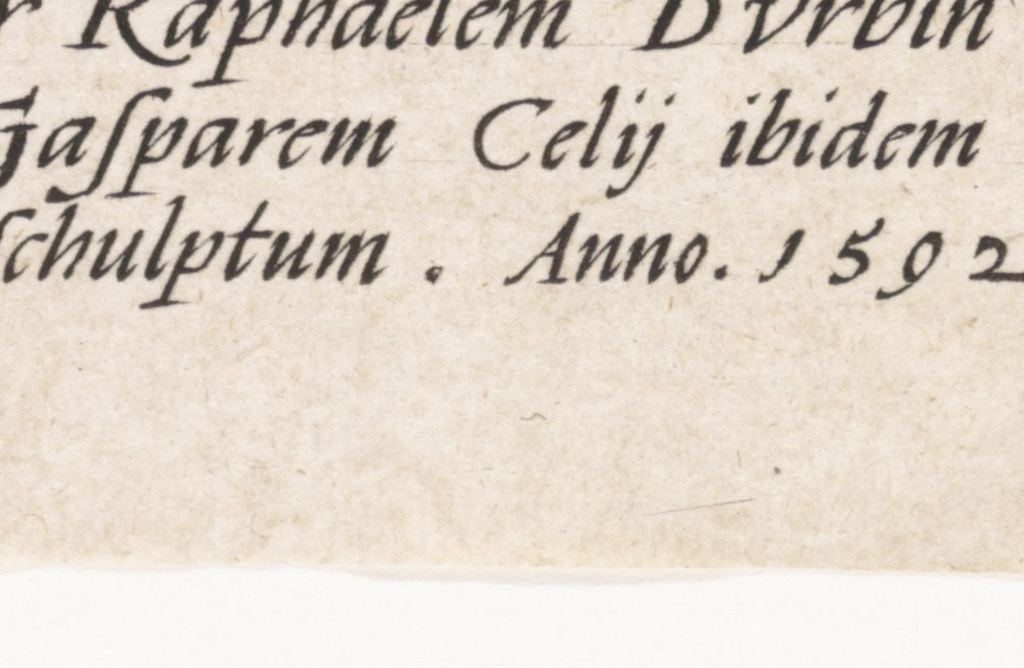 r Raphaelem DVrbin
Gaſparem Celij ibidem
ſchulptum. Anno. 1592